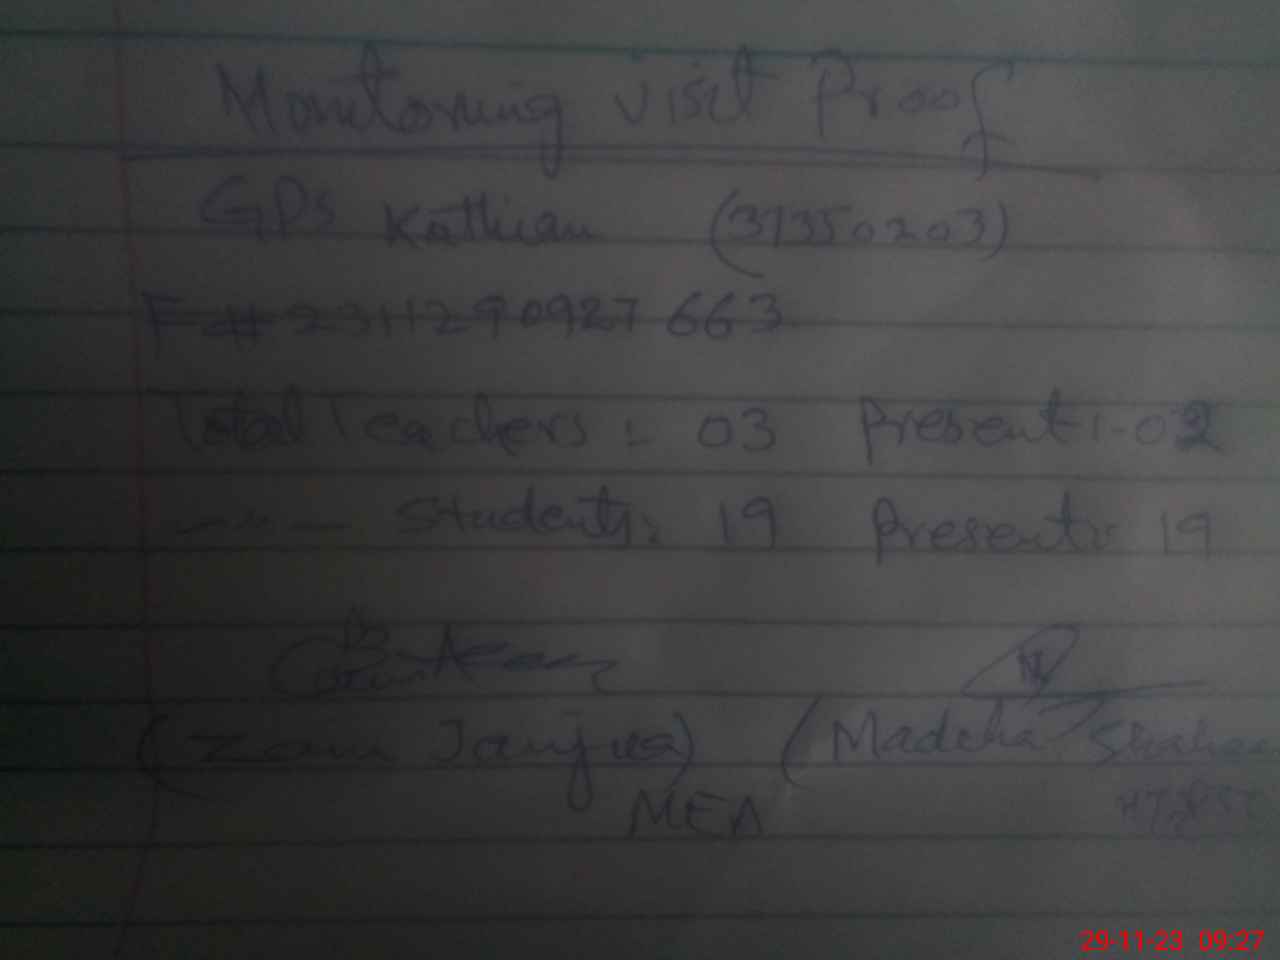 Monitoring visit Proof
GPS Kathian (37350203)
F # 231129 0927 663
Total Teachers :- 03 Present :- 02
—〃— Students :- 19 Present :- 19
(Zain Janjua) (Madeha Shaheen
MEA
29-11-23 09:27